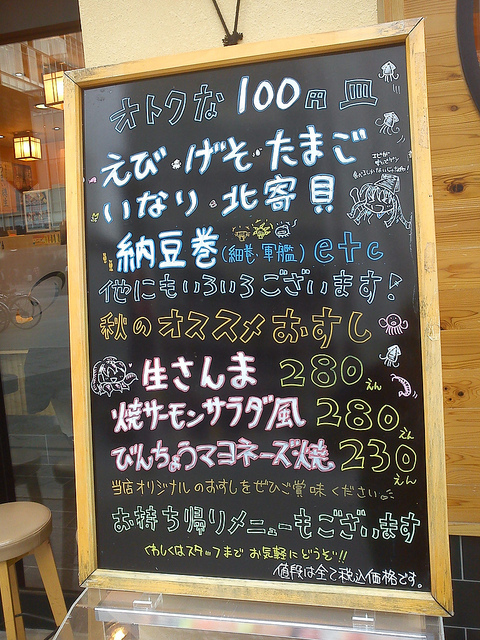 オトクな100円皿
えび・げそ・たまご
いなり・北寄貝
納豆巻(細巻・軍艦)etc
他にもいろいろございます!
秋のオススメおすし
生さんま 280えん
焼サーモンサラダ風 280えん
びんちょうマヨネーズ焼 230えん
当店オリジナルのおすしをぜひご賞味ください。
お持ち帰りメニューもございます
くわしくはスタッフまでお気軽にどうぞ!!
値段は全て税込価格です。